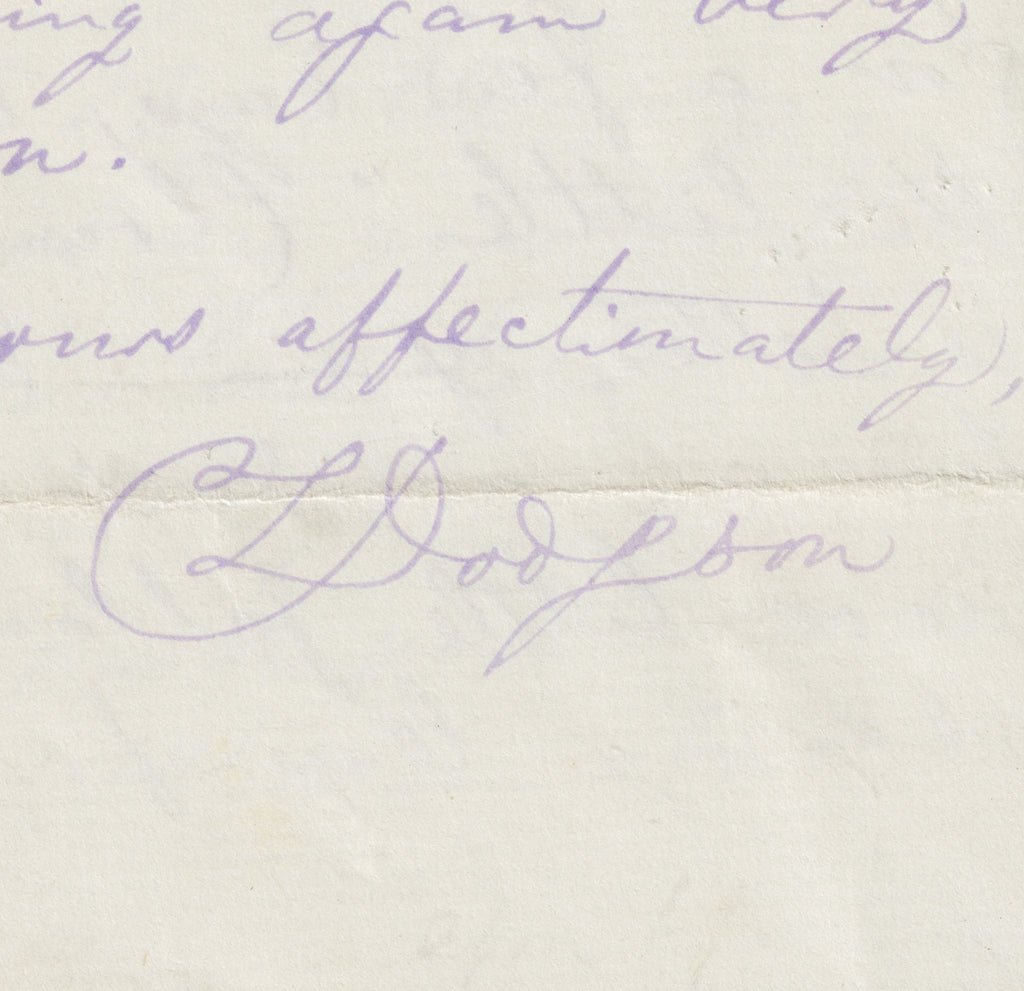 ing again very
n.
ours affectionately,
CLDodgson